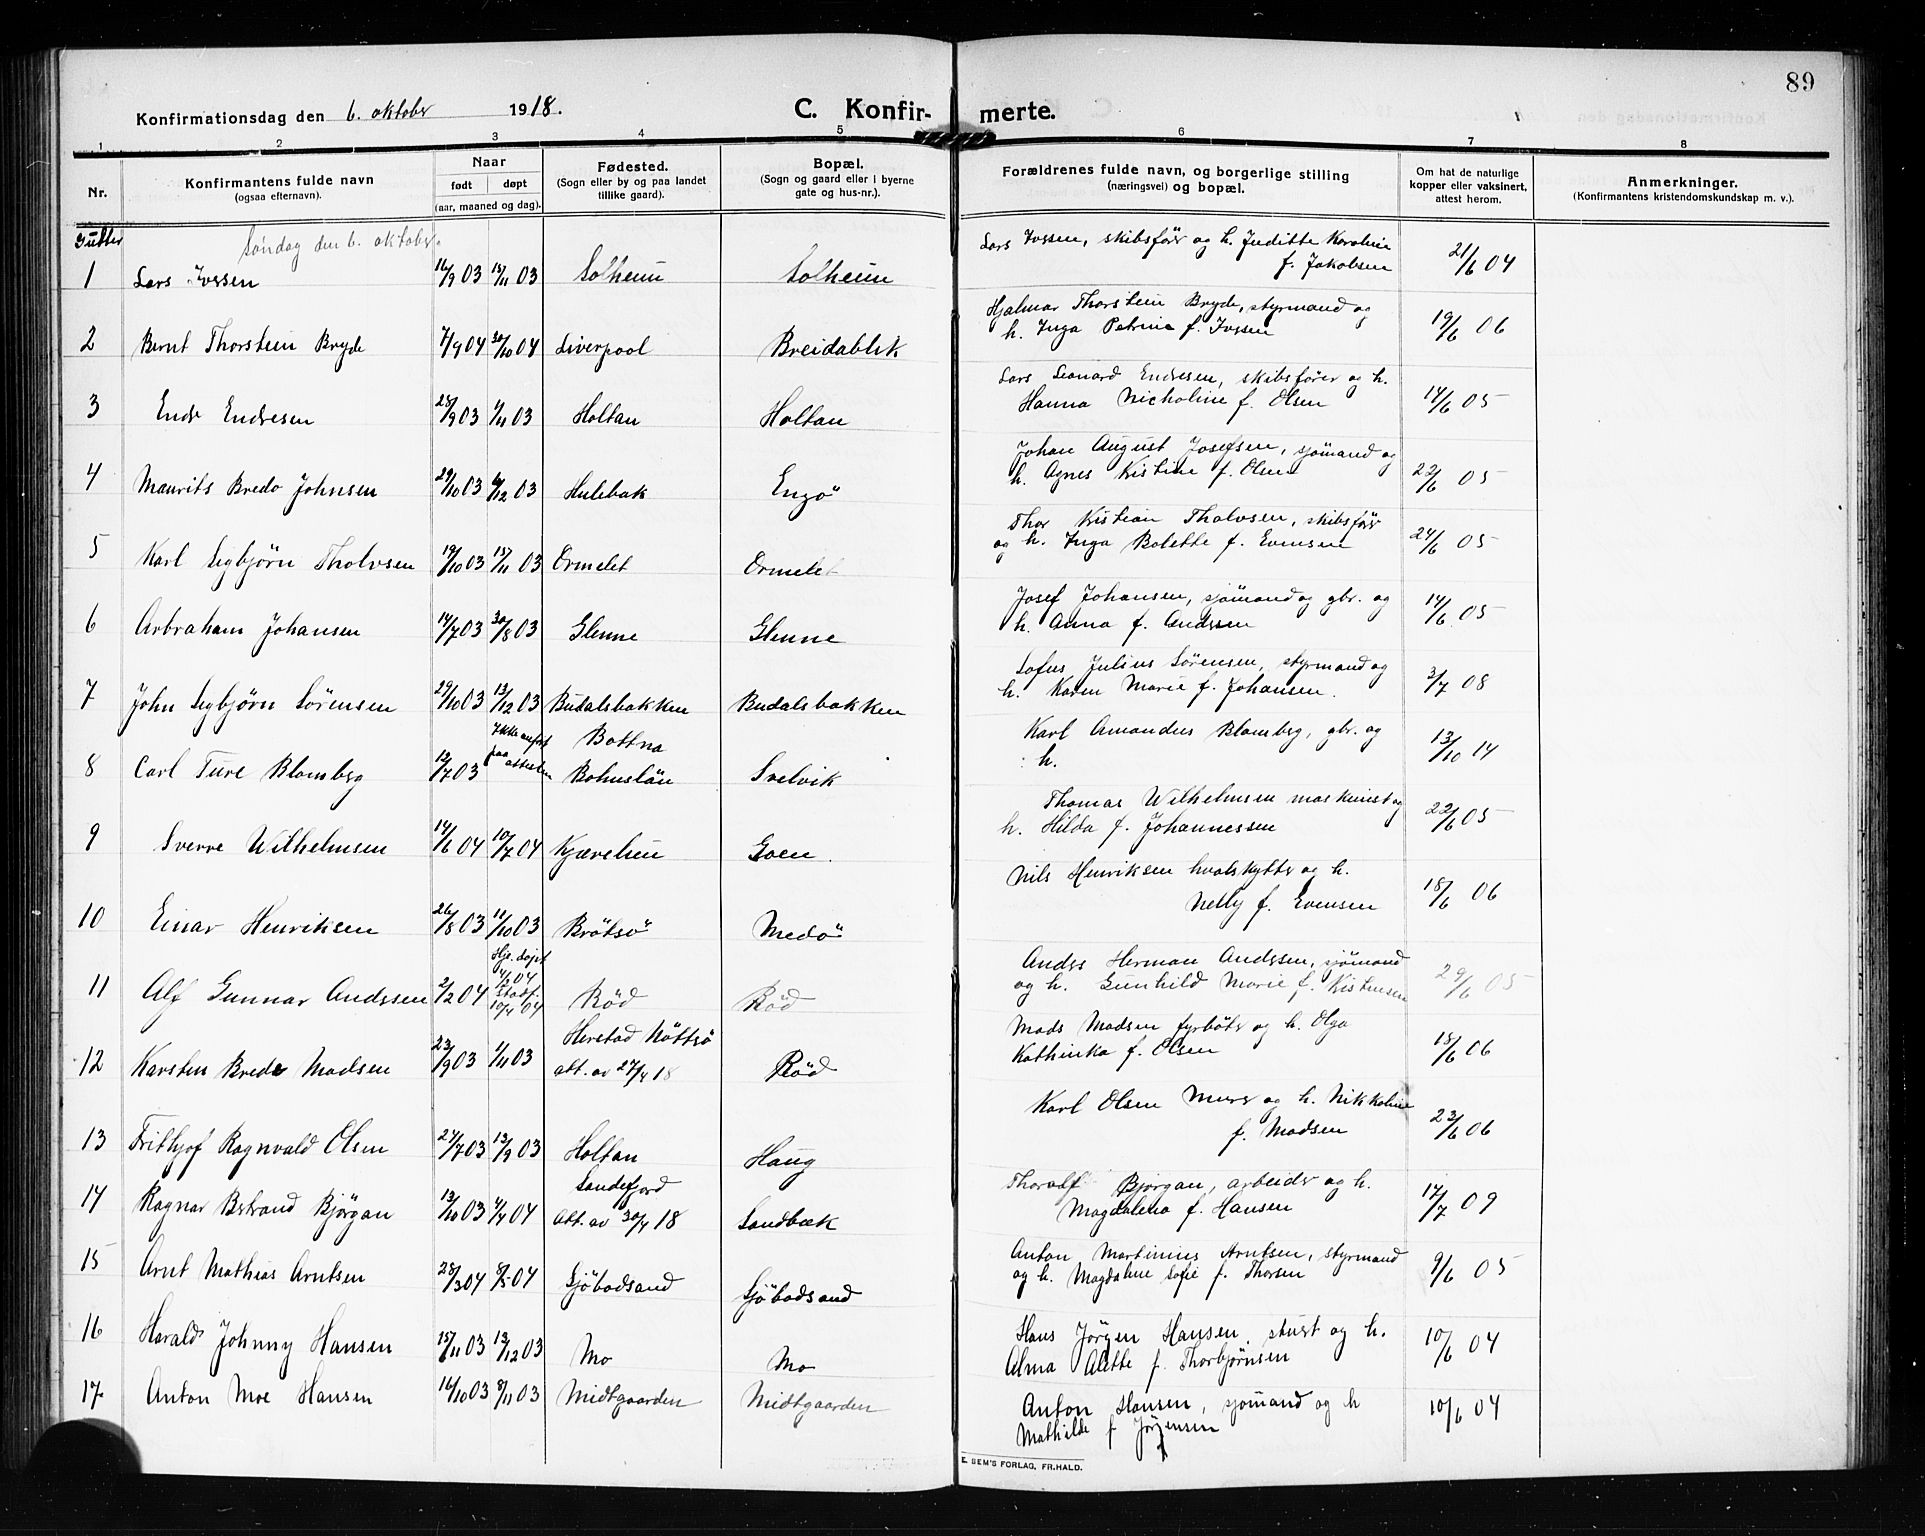 89
Konfirmationsdag den 6. oktober 1918.
C. Konfirmerte.
1 2 3 4 5 6 7 8
Nr.
Konfirmantens fulde navn (ogsaa efternavn).
Naar født døpt (aar, maaned og dag).
Fødested. (Sogn eller by og paa landet tillike gaard).
Bopæl. (Sogn og gaard eller i byerne gate og hus-nr.).
Forældrenes fulde navn, og borgerlige stilling (næringsvei) og bopæl.
Om hat de naturlige kopper eller vaksinert, attest herom.
Anmerkninger. (Konfirmantens kristendomskundskap m. v.).
Gutter
Søndag den 6. oktober.
1 Lars Iversen 16/9 03 15/11 03 Solheim Solheim Lars Iversen, skibsfører og h. Juditte Karoline f. Jakobsen 21/6 04
2 Bernt Thorstein Bryde 7/9 04 30/10 04 Liverpool Breidablik Hjalmar Thorstein Bryde, styrmand og h. Inga Petrine f. Iversen 19/6 06
3 Endr Endresen 25/9 03 1/11 03 Holtan Holtan Lars Leonard Endresen, skibsfører og h. Hanna Nicholine f. Olsen 14/6 05
4 Maurits Bredo Johnsen 29/10 03 6/12 03 Hulebak Engö Johan August Josefsen, sjömand og h. Agnes Kristine f. Olsen 22/6 05
5 Karl Sigbjørn Tholvsen 19/10 03 15/11 03 Ormelet Ormelet Thor Kristian Tholvsen, skibsfører og h. Inga Bolette f. Evensen 24/6 05
6 Arbraham Johansen 14/7 03 30/8 03 Glenne Glenne Josef Johansen, sjömand og gbr. og h. Anna f. Andersen 14/6 05
7 John Sigbjørn Sørensen 29/10 03 13/12 03 Budalsbakken Budalsbakken Sofus Julius Sørensen, styrmand og h. Karen Marie f. Johansen. 3/7 08
8 Carl Ture Blomberg 12/7 03 Ikke anført paa attesten Bottna Bohuslän Svelvik Karl Amandus Blomberg, gbr. og h. 13/10 14
9 Sverre Wilhelmsen 14/6 04 10/7 04 Kjærelsen Goen. Thomas Wilhelmsen maskinist og h. Hilda f. Johannessen 22/6 05
10 Einar Henriksen 26/8 03 11/10 03 Brötsö Medö Nils Henriksen hvalskytter og h. Nelly f. Evensen 18/6 06
11 Alf Gunnar Andersen 2/2 04 Hje. döpt 4/2 04 Stadf. 10/4 04 Röd Röd Anders Herman Andersen, sjömand og h. Gunhild Marie f. Kristensen 29/6 05
12 Karsten Brede Madsen 23/9 03 1/11 03 Herstad Nöttsö att. av 27/4 18 Röd Mads Madsen fyrböter og h. Olga Kathinka f. Olsen 18/6 06
13 Frithjof Ragnvald Olsen 27/7 03 13/9 03 Holtan Haug Karl Olsen Murer og h. Nikkoline f. Madsen 23/6 06
14 Ragnar Bertrand Bjørgan 13/10 03 4/4 04 Sandefjord Att. av 30/4 18 Sandbæk Thoralf Bjørgan, arbeider og h. Magdalena f. Hansen 17/7 09
15 Arnt Mathias Arntsen 28/3 04 8/5 04 Sjöbodsand Sjöbodsand Anton Martinius Arntsen, styrmand og h. Magdalene Sofie f. Thorsen 9/6 05
16 Harald Johnny Hansen 15/11 03 13/12 03 Mo Mo Hans Jörgen Hansen, stuert og h. Alma Alette f. Thorbjørnsen 10/6 04
17 Anton Moe Hansen 16/10 03 8/11 03 Midtgaarden Midtgaarden Anton Hansen, sjømand og h Mathilde f Jørgensen 10/6 04
E. SEM'S FORLAG, FR.HALD.